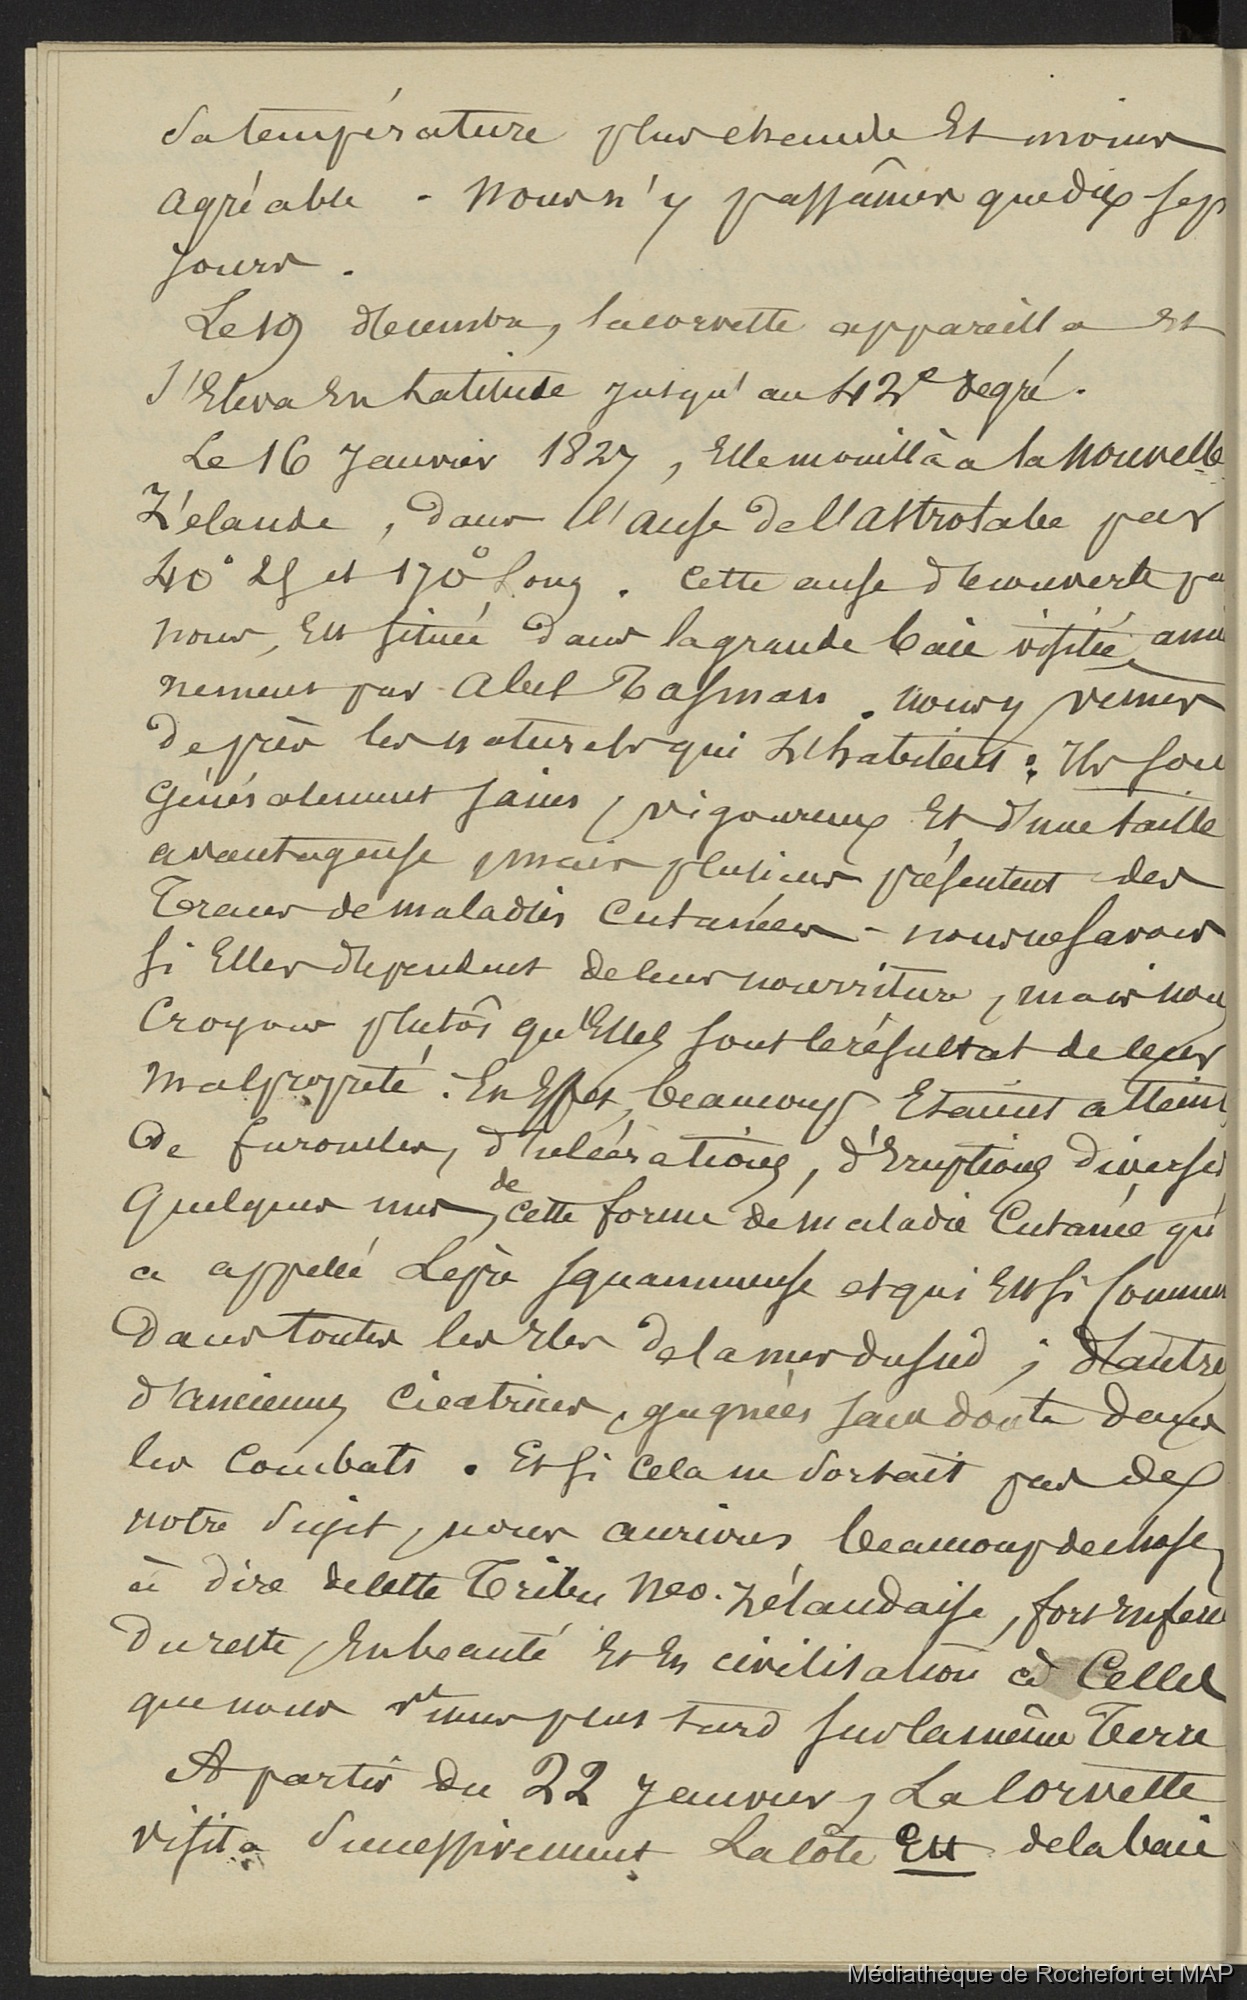 Sa température plus chaude Et moins
agréable - Nous n'y passâmes que dix-sep
jours.
Le 19 décembre, la corvette appareilla Et
s'Eleva En Latitude jusqu'au 42e degré.
Le 16 Janvier 1827, Elle mouilla à la Nouvelle
Zélande, dans l'anse de l'Astrolabe par
40° 28 et 170° Long. Cette anse découverte pa
nous, Est située dans la grande baie visitée, anu
nement par Abel Tasman. nous y vimes
de près les naturels qui l'habitent: Ils son
Généralement sains, vigoureux Et d'une taille
avantageuse, mais plusieurs présentent des
Traces de maladies Cutanées - nous ne savons
si Elles dépendent de leur nourriture, mais nou
Croyons plutôt qu'Elles sont le résultat de leur
malpropreté. En Effet, beaucoup Etaient atteint
De furoncles, d'ulcérations, d'Eruptions diverses
Quelques uns, de cette forme de maladie Cutanée qu'
a appelé Lèpre squammeuse et qui Est si Commun
Dans toutes les Iles de la mer du sud; d'autres
d'anciennes cicatrices, gagnées sans doute dans
les Combats. Et si cela ne sortait pas de
notre sujet, nous aurions beaucoup de choses
à dire de cette Tribu Néo-Zélandaise, fort infér
du reste, En beauté Et En civilisation à Celles
que nous vîmes plus tard sur la même Terre
A partir du 22 Janvier, La Corvette
visita successivement La Côte Est de la baie
Médiathèque de Rochefort et MAP